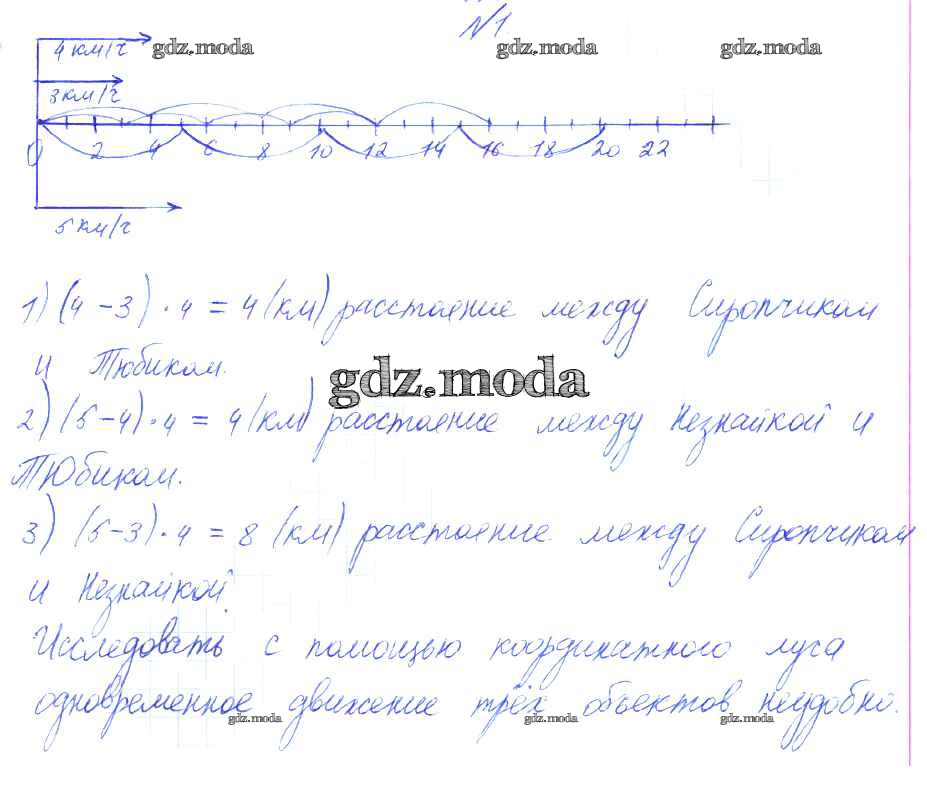 №1.
4 км/ч
gdz.moda gdz.moda gdz.moda
3 км/ч
0 2 4 6 8 10 12 14 16 18 20 22
5 км/ч
1) (4-3)·4=4(км) расстояние между Сиропчиком
и Тюбиком.
gdz.moda
2) (5-4)·4=4(км) расстояние между Незнайкой и
Тюбиком.
3) (5-3)·4=8 (км) расстояние между Сиропчиком
и Незнайкой.
Исследовать с помощью координатного луча
одновременное движение трёх объектов неудобно.
gdz.moda gdz.moda gdz.moda